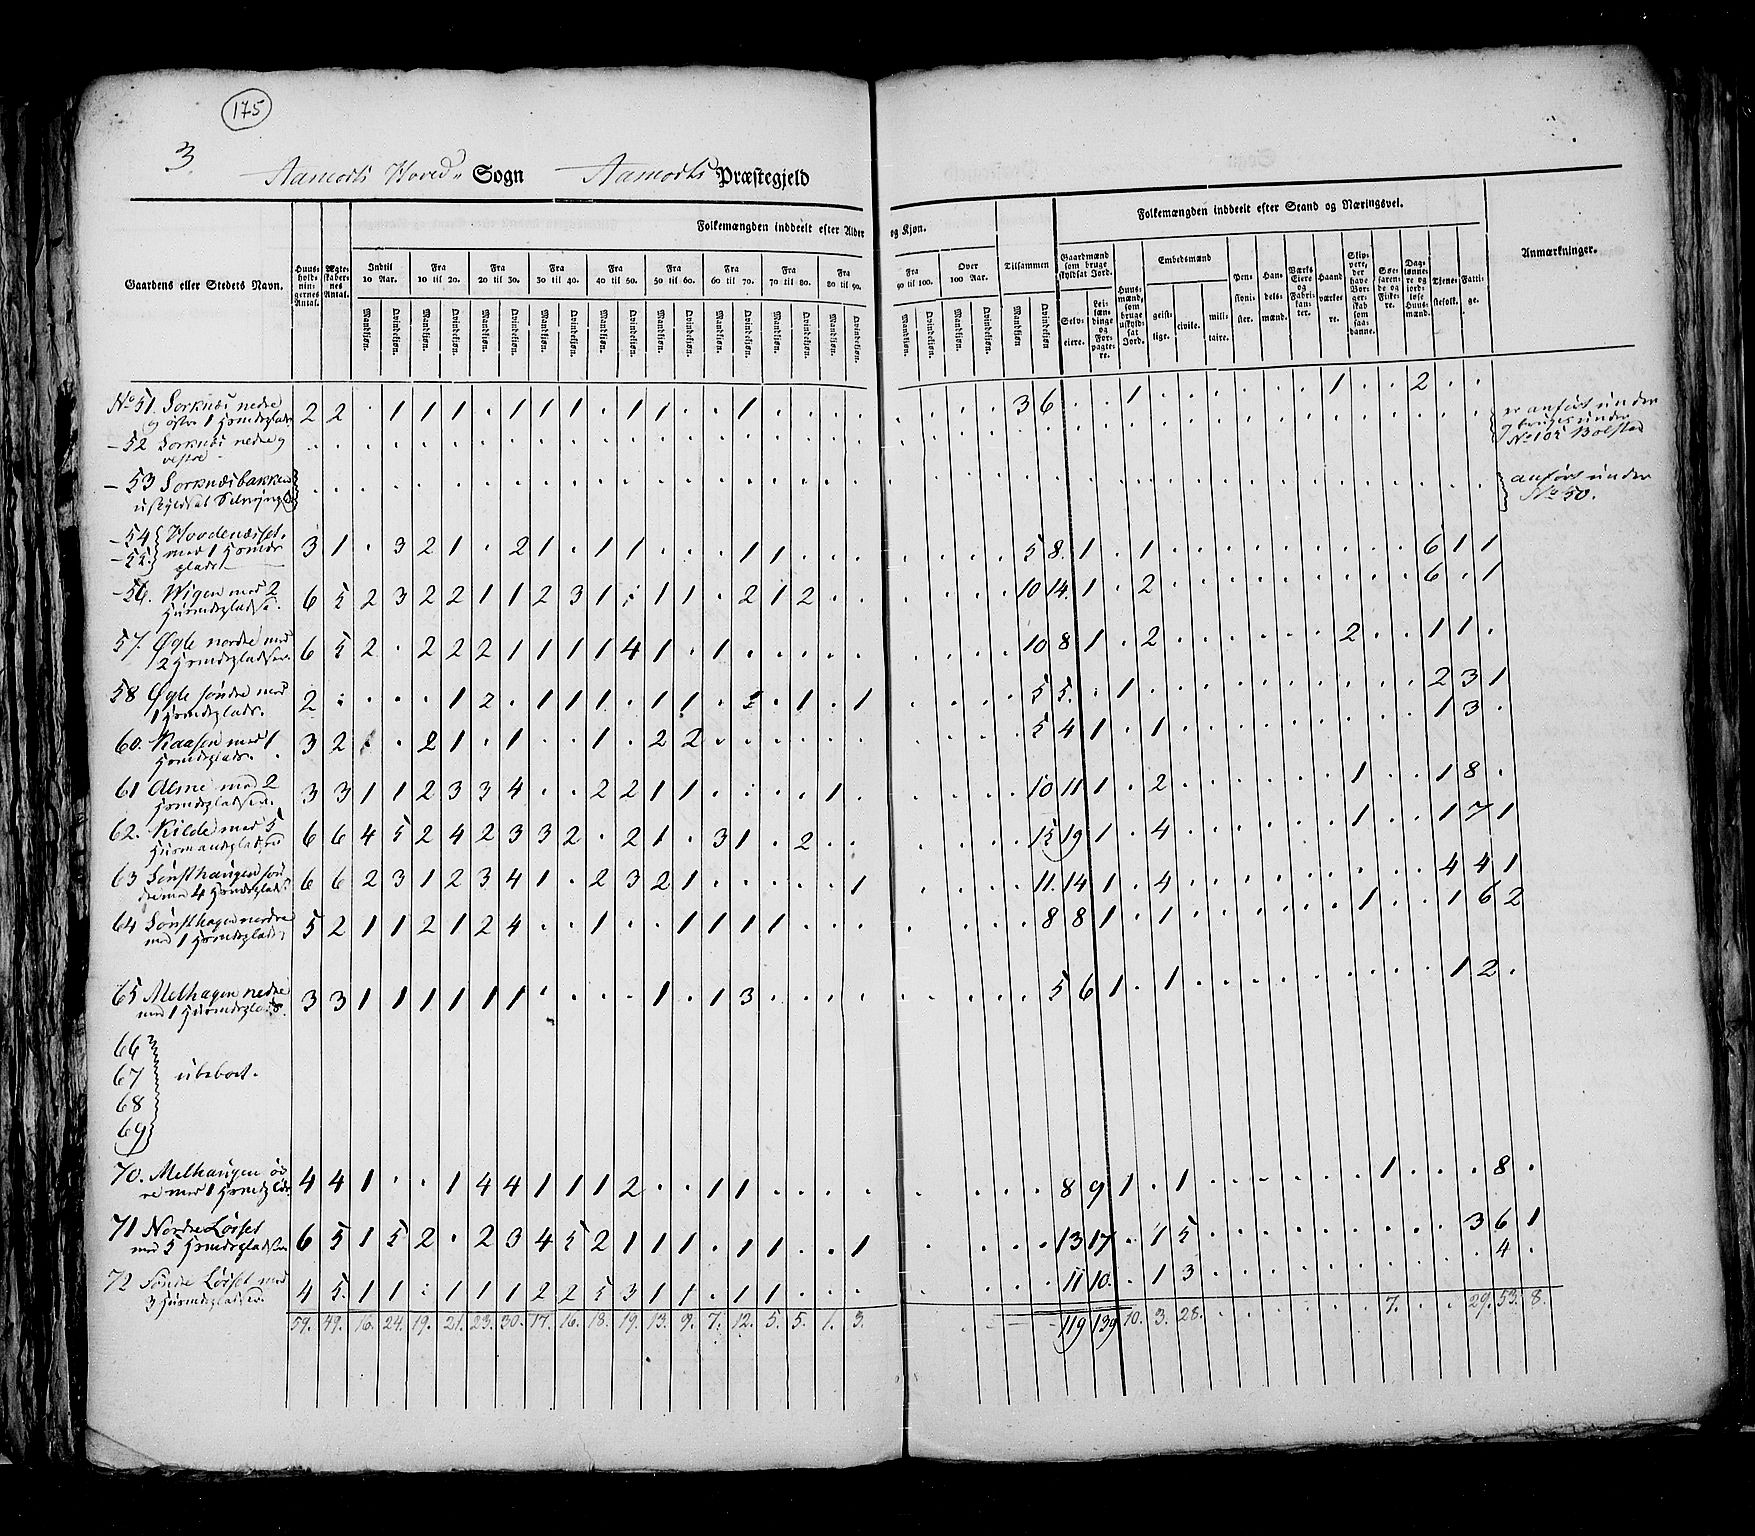 175
3.
Aamodts Hoved- Sogn Aamodts Præstegjeld
Gaardens eller Stedets Navn.
Huus-holdningernes Antal.
Ægteskabernes Antal.
Folkemængden inddeelt efter Alder og Kjøn.
Indtil 10 Aar. Fra 10 til 20. Fra 20 til 30. Fra 30 til 40. Fra 40 til 50. Fra 50 til 60. Fra 60 til 70. Fra 70 til 80. Fra 80 til 90. Fra 90 til 100. Over 100 Aar. Tilsammen
Mandkjøn. Qvindekjøn.
Folkemængden inddeelt efter Stand og Næringsvei.
Gaardmænd som bruge skyldsat Jord.
Selveiere. Leilændinge og Forpagtere.
Huusmænd, som bruge uskyldsat Jord.
Embedsmænd
geistlige. civile. militaire.
Pensionister. Handelsmænd. Værks Eiere og Fabrikanter. Haandværkere. Skippere, der have Borgerskab som saadanne. Søefarende og Fiskere. Daglønnere og jordløse Huusmænd. Tjenestefolk. Fattige.
Anmærkninger.
No 51. Sorknæs nedre
og østre 1 2 2 . 1 1 1 . 1 1 1 . 1 1 . . 1 . . . . . . . . 3 6 . . 1 . . . . . . 1 . . 2 . .
- 52 Sorknæs nedre og
vestre
er anført under
og bruges under
No 102 Bolstad
- 53 Sorknæsbakken
anført under
No 50.
- 54
- 55. med 1 3 1 . 3 2 1 . 2 1 . 1 1 . . . 1 1 . . . . . . . 5 8. 1 . 1 . . . . . . . . . 6 1 1
- 56. Wigen med 2 6 5 2 3 2 2 1 1 2 3 1 . 1 1 . 2 1 2 . . . . . . 10 14. 1 . 2 . . . . . . . . . 6 . 1
57. Øgle nordre med
2 6 5 2 . 2 2 2 1 1 1 1 4 1 . 1 . . . . . . . . . 10 8 1 . 2 . . . . . . 2 . . 1 1 .
58 Øgle søndre med
1 2 . . . . 1 2 . 1 1 1 . 1 1 . . 1 . 1 . . . . 5 5. . 1 . . . . . . . . . . 2 3 1
60. Kaasen med 1 3 2 . . 2 1 . 1 . . 1 . 2 2 . . . . . . . . . . 5 4 1 . 1 . . . . . . . . . 1 3 .
61 Alme med 2 3 3 1 1 2 3 3 4 . . 2 2 1 1 . . . . 1 . . . . . 10 11 1 . 2 . . . . . . 1 . . 1 8 .
62. Kilde med 5
6 6 4 5 2 4 2 3 3 2 . 2 1 . 3 1 . 2 . . . . . . 15 19 1 . 4 . . . . . . 1 . . 1 7 1
63
med 4 6 6 2 3 1 2 3 4 1 . 2 3 2 1 . . . . . 1 . . . . 11. 14 1 . 4 . . . . . . . . . 4 4 1
64 nordre
med 1 5 2 1 1 2 1 2 4 . . 1 . . 1 1 1 1 . . . . . . . 8 8 1 . 1 . . . . . . 1 . . 1 6 2
65 Melhagen nedre
med 1 3 3 1 1 1 1 1 1 . . . . 1 . 1 3 . . . . . . . . 5 6 1 . 1 . . . . . . . . . 1 2 .
66
67 ubeboet.
68
69
70. Melhaugen øv
re med 1 4 4 1 . . 1 4 4 1 1 1 2 . . 1 1 . . . . . . . . 8 9 1 . 1 . . . . . . 1 . . . 8 .
71 Nordre Løsset
med 5 6 5 1 5 2 . 2 3 4 5 2 1 1 1 . 1 1 . . 1 . . . . 13 17 . 1 5 . . . . . . . . . 3 6 1
72 Søndre Løsset med
3 4 5. 1 1 . 1 1 1 2 2 5 3 1 1 . 1 1 . . . . . . . 11 10. . 1 3 . . . . . . . . . . 4 .
59. 49. 16. 24. 19. 21. 23. 30. 17. 16. 18. 19. 13. 9. 7. 12. 5. 5. 1. 3. 119 139 10. 3. 28. 7. 29. 53. 8.